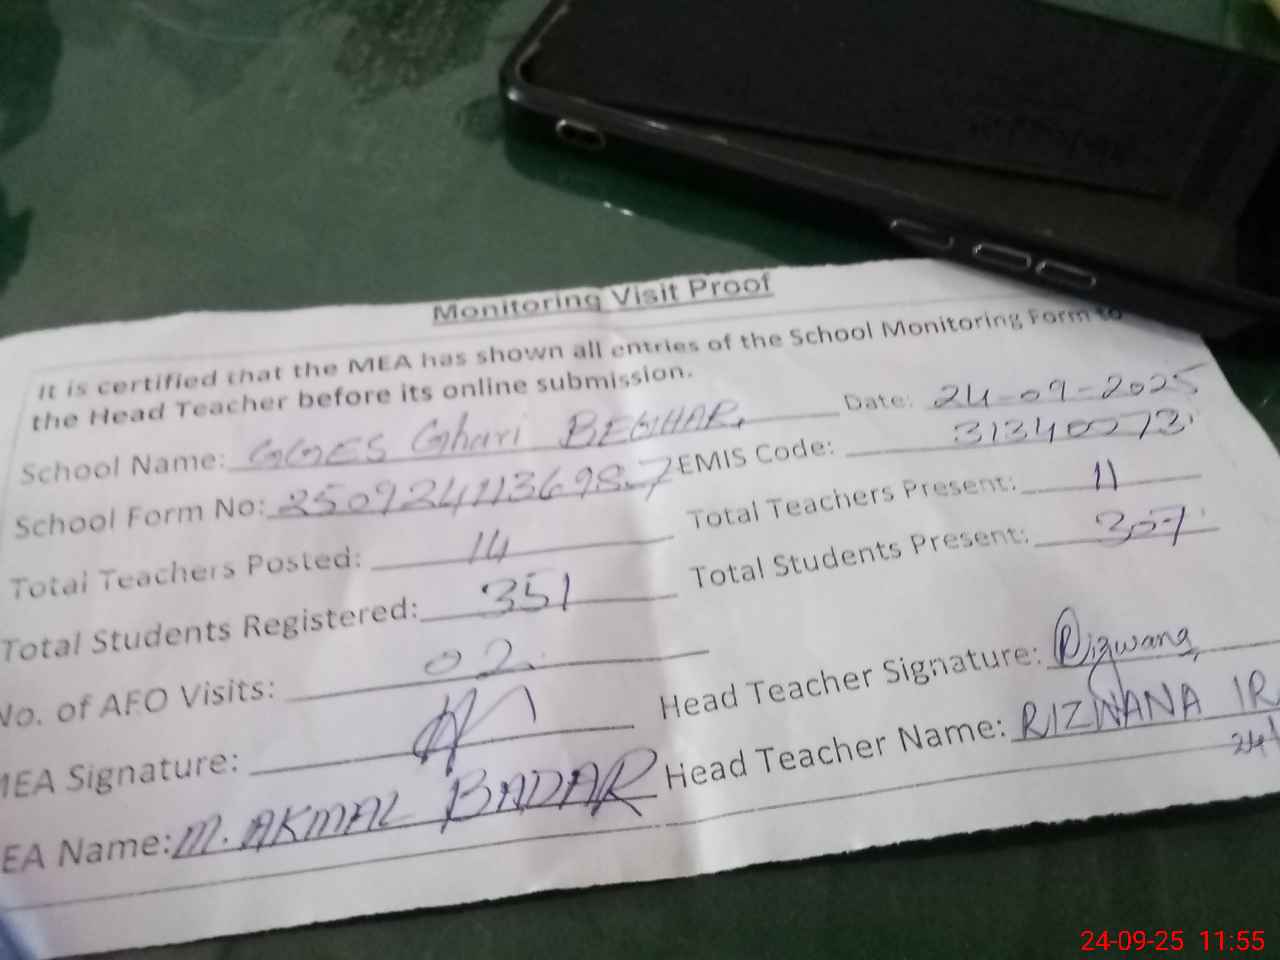 Monitoring Visit Proof
It is certified that the MEA has shown all entries of the School Monitoring Form to
the Head Teacher before its online submission.
School Name: GGES Ghari BEGHAR, Date: 24-09-2025
School Form No: EMIS Code: 31340073
Total Teachers Posted: 14 Total Teachers Present: 11
Total Students Registered: 351 Total Students Present: 307
No. of AEO Visits: 02
MEA Signature: Head Teacher Signature: Rizwana
EA Name: M. AKMAL BADAR Head Teacher Name: RIZWANA IR
24-09-25 11:55